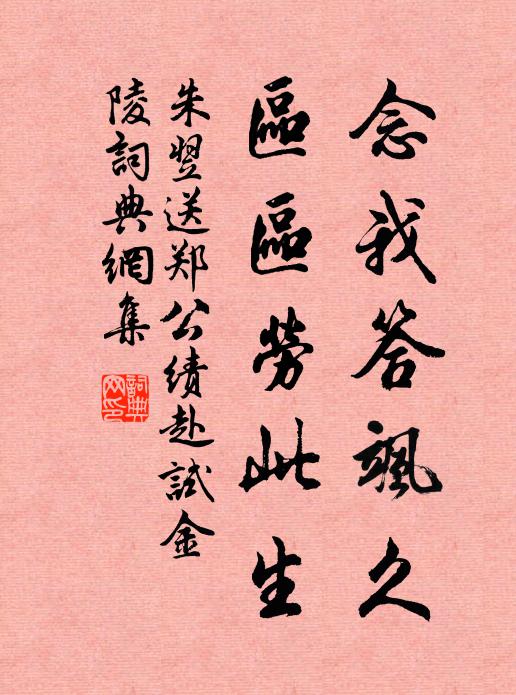 念我答颯久
區區勞此生
朱翌送郑公绩赴試金
陵詞典網集
詞典网印